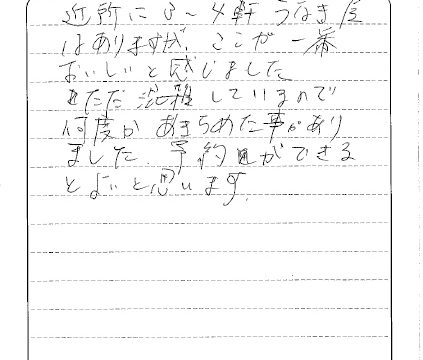 近所に3〜4軒うなぎ屋
はありますが、ここが一番
おいしいと感じました
ただ混雑しているので
何度かあきらめた事があり
ました 予約ができる
とよいと思います。